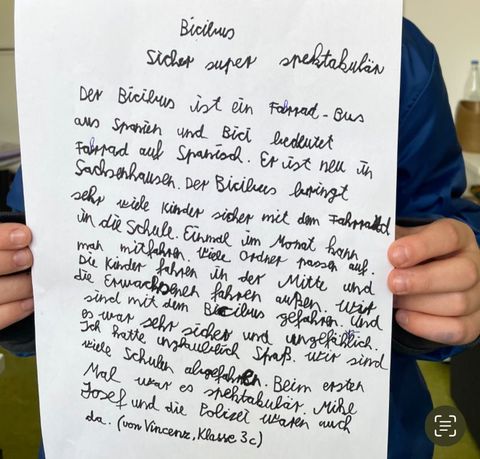 Bicibus
Sicher super spektakulär
Der Bicibus ist ein Fahrrad-Bus
aus Spanien und Bici bedeutet
Fahrrad auf Spanisch. Er ist neu in
Sachsenhausen. Der Bicibus bringt
sehr viele Kinder sicher mit dem Fahrrad
in die Schule. Einmal im Monat kann
man mitfahren. Viele Ordner passen auf.
Die Kinder fahren in der Mitte und
die Erwachsenen fahren außen. Wir
sind mit dem Bicibus gefahren. Und
es war sehr sicher und ungefährlich.
Ich hatte unglaublich Spaß. Wir sind
viele Schulen abgefahren. Beim ersten
Mal war es spektakulär. Mike
Josef und die Polizei waren auch
da. (von Vincenz, Klasse 3c)